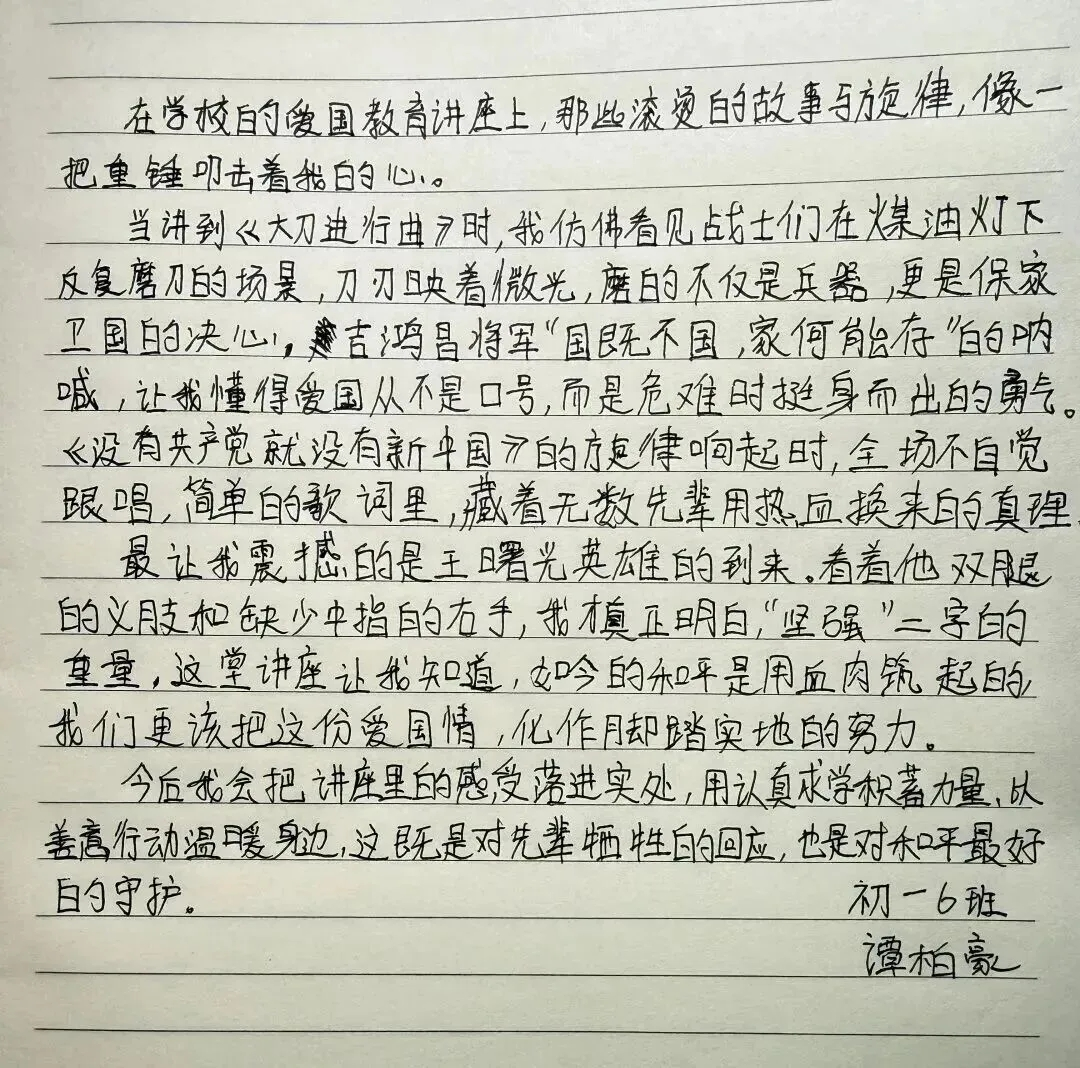 在学校的爱国教育讲座上,那些滚烫的故事与旋律,像一
把重锤叩击着我的心。
当讲到《大刀进行曲》时,我仿佛看见战士们在煤油灯下
反复磨刀的场景,刀刃映着微光,磨的不仅是兵器,更是保家
卫国的决心,吉鸿昌将军“国既不国,家何能存”的呐
喊,让我懂得爱国从不是口号,而是危难时挺身而出的勇气。
《没有共产党就没有新中国》的旋律响起时,全场不自觉
跟唱,简单的歌词里,藏着无数先辈用热血换来的真理.
最让我震撼的是王曙光英雄的到来。看着他双腿
的义肢和缺少中指的右手,我才真正明白,“坚强”二字的
重量,这堂讲座让我知道,如今的和平是用血肉筑起的,
我们更该把这份爱国情,化作脚踏实地的努力。
今后我会把讲座里的感受落进实处,用认真求学积蓄力量、以
善意行动温暖身边,这既是对先辈牺牲的回应,也是对和平最好
的守护。
初一6班
谭柏豪